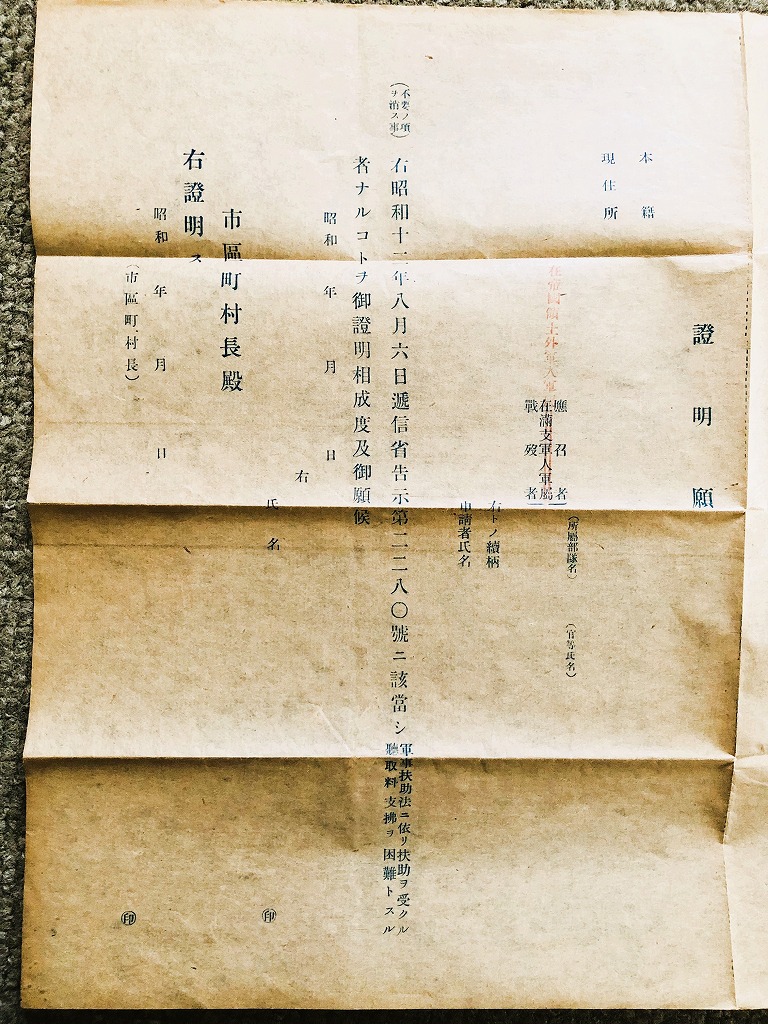 證明願
本籍
現住所
在帝國領土外軍人軍
應召者
在滿支軍人軍屬
戰歿者
(所屬部隊名)
(官等氏名)
右トノ續柄
申請者氏名
(不要ノ項
ヲ消ス事)
右昭和十二年八月六日遞信省告示第二二八〇號ニ該當シ
軍事扶助法ニ依リ扶助ヲ受クル
聽取料支拂ヲ困難トスル
者ナルコトヲ御證明相成度及御願候
昭和 年 月 日
右
氏名 ㊞
市區町村長殿
右證明ス
昭和 年 月 日
(市區町村長) ㊞